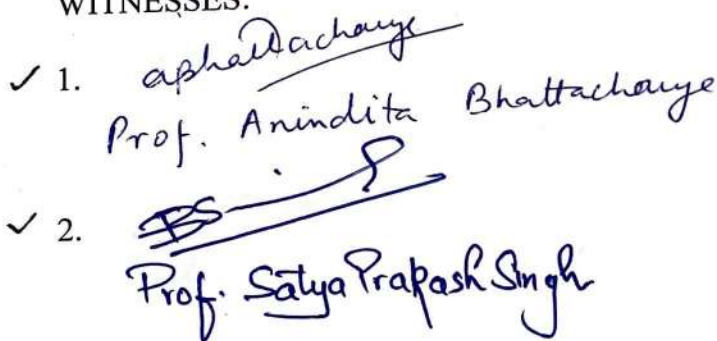 WITNESSES:
✓ 1. aphattacharye
Prof. Anindita Bhattacharye
✓ 2.
Prof. Satya Prakash Singh